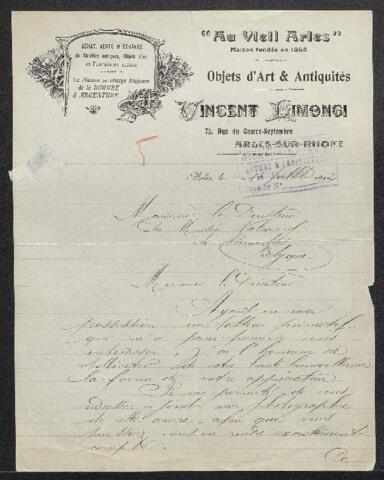 ACHAT, VENTE et ECHANGE
de Meubles anciens, Objets d'art
La Maison se charge toujours
de la DORURE
& ARGENTURE
"Au Vieil Arles"
Maison fondée en 1868
Objets d'Art & Antiquités
VINCENT LIMONGI
73, Rue du Quatre-Septembre
ARLES-SUR-RHÔNE
5
Arles, le Juillet 1912
Monsieur le Directeur
du Musée
Belgique
Monsieur le Directeur
Ayant en ma
possession un tableau primitif
qui m'a paru pouvoir vous
intéresser, j'ai l'honneur de
solliciter de votre haute bienveillance
la faveur de votre appréciation
Je me permets de vous
adresser ci-joint une photographie
de cette œuvre, afin que vous
puissiez vous en rendre exactement
compte.